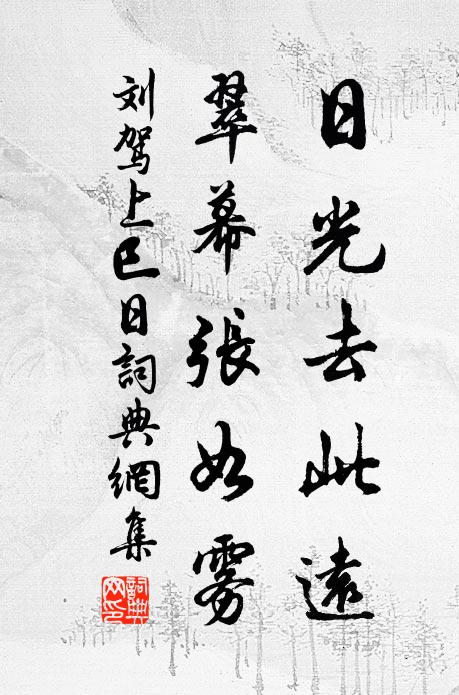 日光去此遠
翠幕張如雾
刘驾上巳日詞典網集
詞典網印